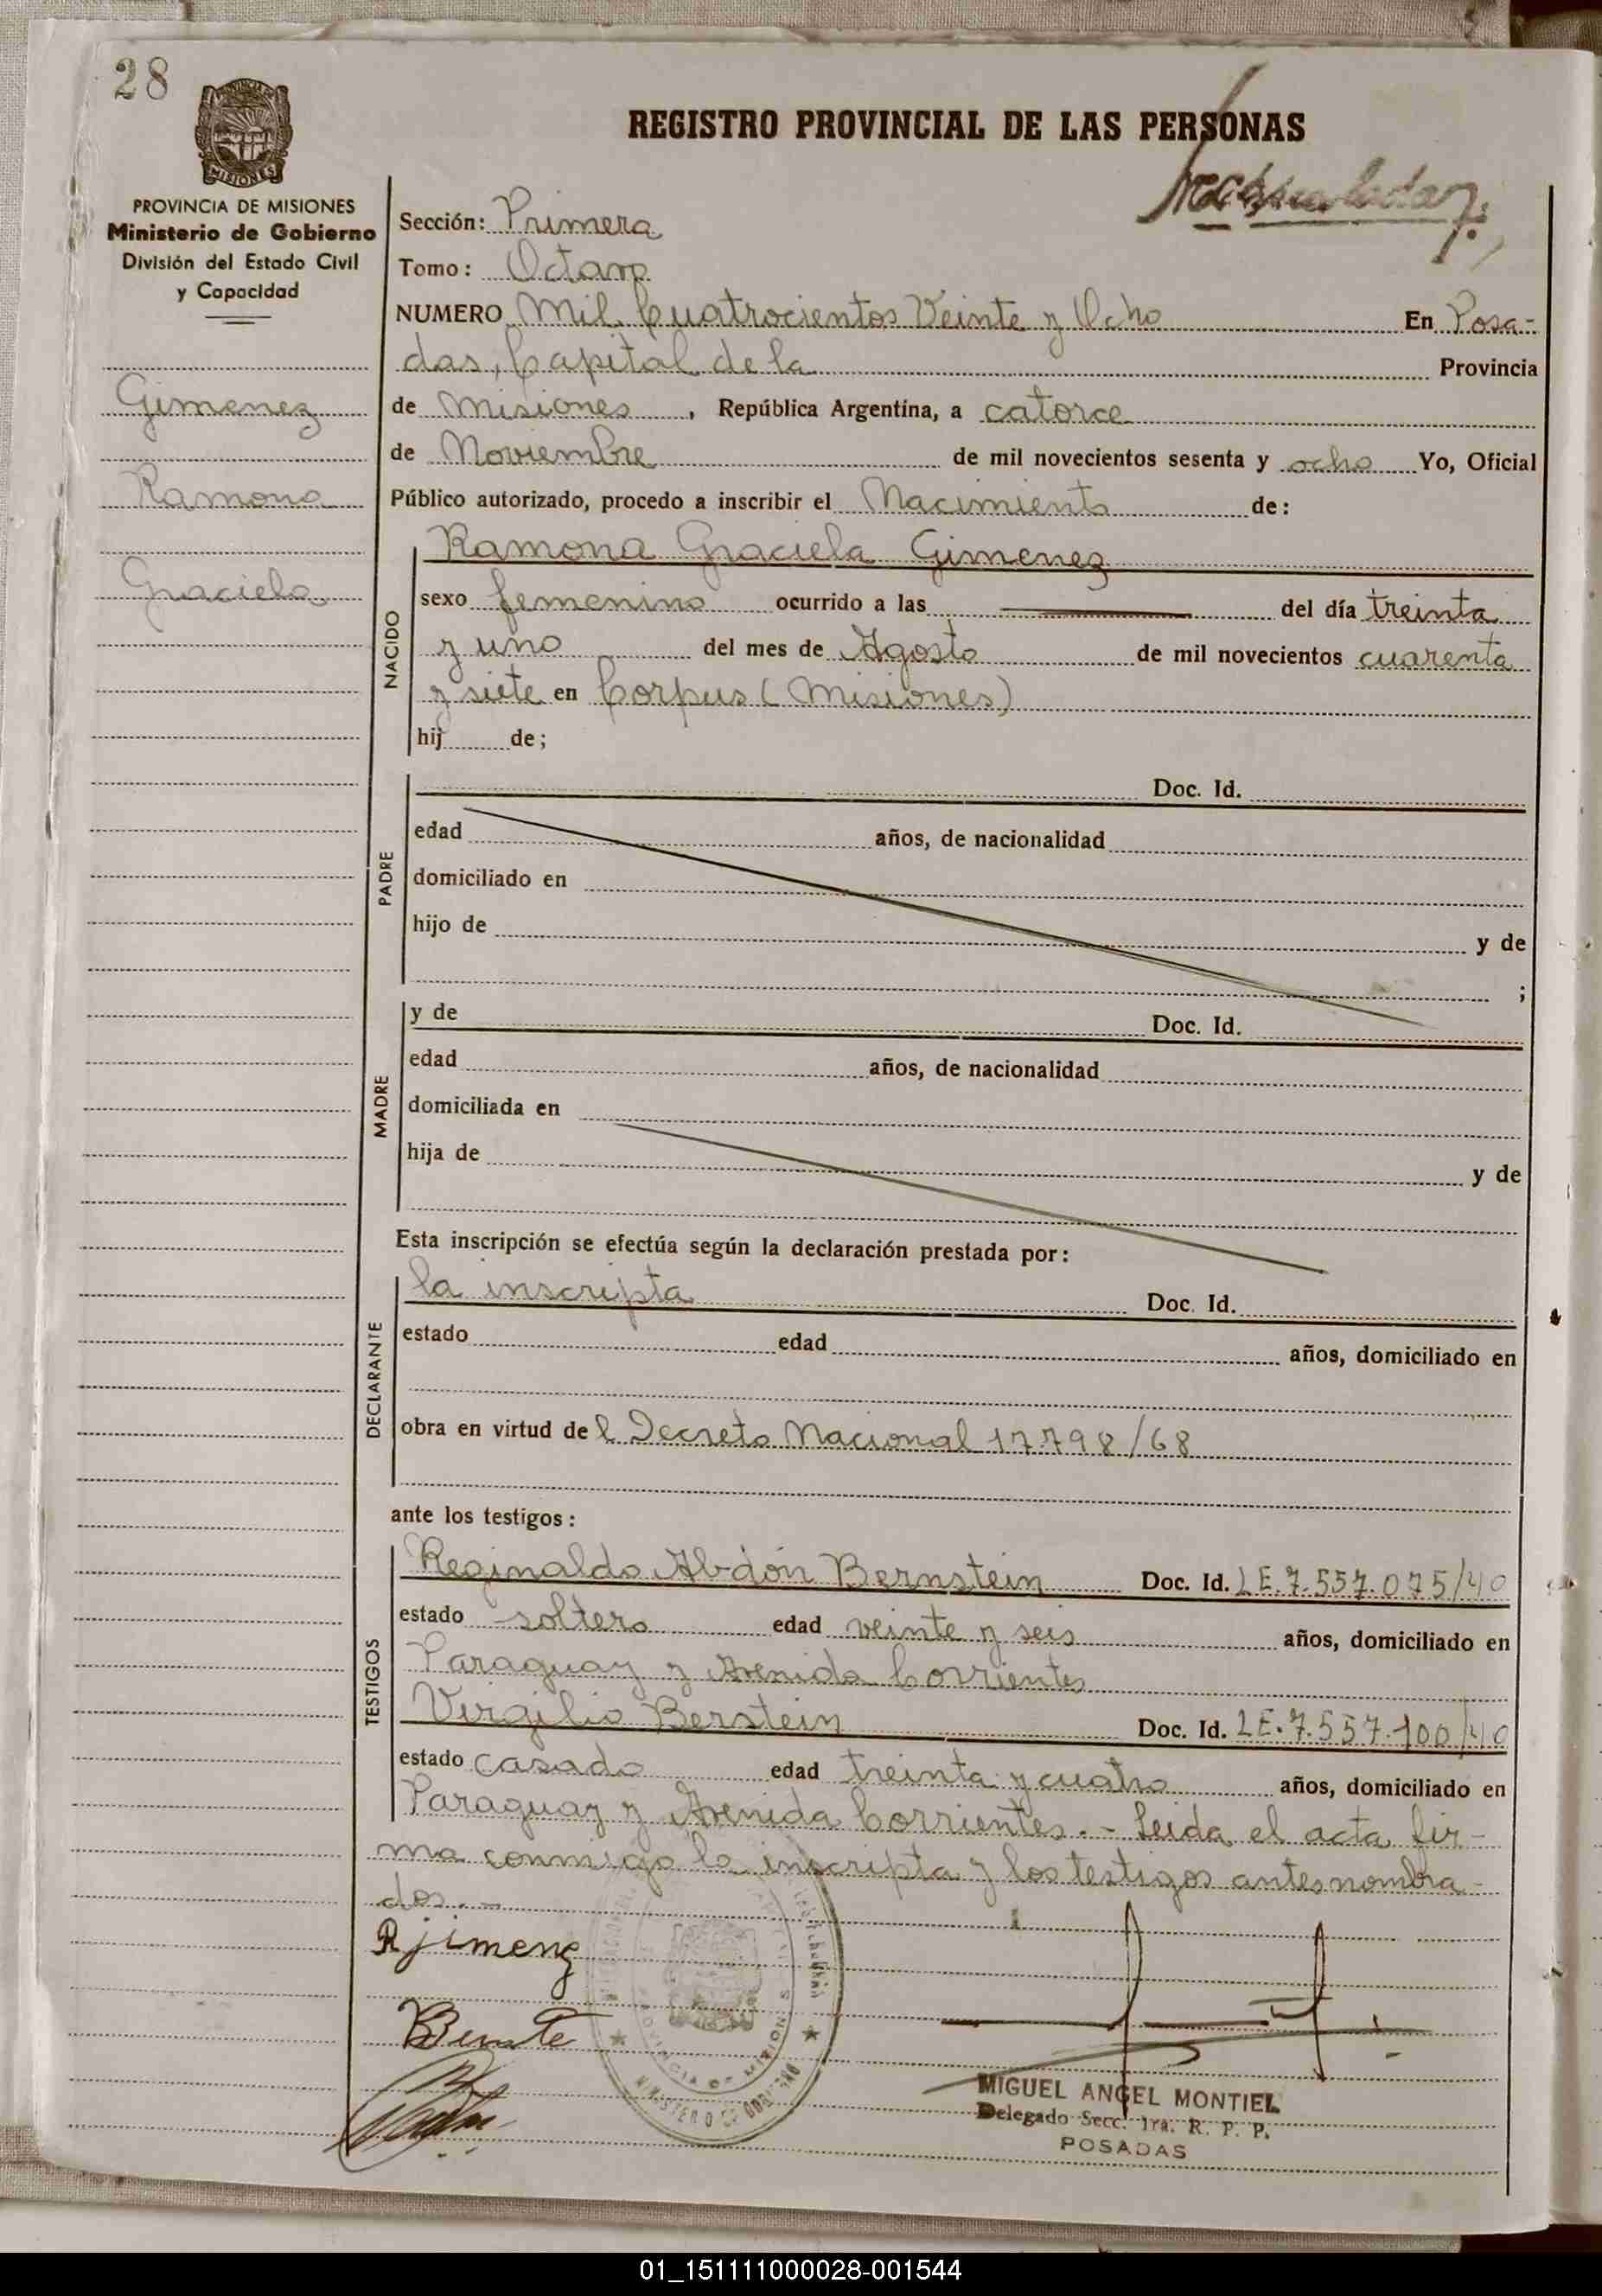 28
PROVINCIA DE MISIONES
Ministerio de Gobierno
División del Estado Civil
y Capacidad
REGISTRO PROVINCIAL DE LAS PERSONAS
Sección: Primera
Tomo: Octavo
NUMERO Mil Cuatrocientos Veinte y Ocho En Posa-
das, Capital de la Provincia
de Misiones, República Argentina, a catorce
de Noviembre de mil novecientos sesenta y ocho Yo, Oficial
Público autorizado, procedo a inscribir el Nacimiento de:
Gimenez
Ramona
Graciela
NACIDO
Ramona Graciela Gimenez
sexo femenino ocurrido a las del día treinta
y uno del mes de Agosto de mil novecientos cuarenta
y siete en Corpus (Misiones)
hij de;
PADRE
Doc. Id.
edad años, de nacionalidad
domiciliado en
hijo de y de
;
MADRE
y de Doc. Id.
edad años, de nacionalidad
domiciliada en
hija de y de
Esta inscripción se efectúa según la declaración prestada por:
DECLARANTE
la inscripta Doc. Id.
estado edad años, domiciliado en
obra en virtud de l Decreto Nacional 17798/68
ante los testigos:
TESTIGOS
Reginaldo Abdón Bernstein Doc. Id. LE.7.557.075/40
estado soltero edad veinte y seis años, domiciliado en
Paraguay y Avenida Corrientes
Virgilio Berstein Doc. Id. LE.7.557.100/40
estado casado edad treinta y cuatro años, domiciliado en
Paraguay y Avenida Corrientes.- Leida el acta fir-
ma conmigo la inscripta y los testigos antes nombra-
dos.-
R jimenz
PROVINCIA DE MISIONES
MINISTERIO DE GOBIERNO
MIGUEL ANGEL MONTIEL
Delegado Secc. 1ra. R. P. P.
POSADAS
01_151111000028-001544